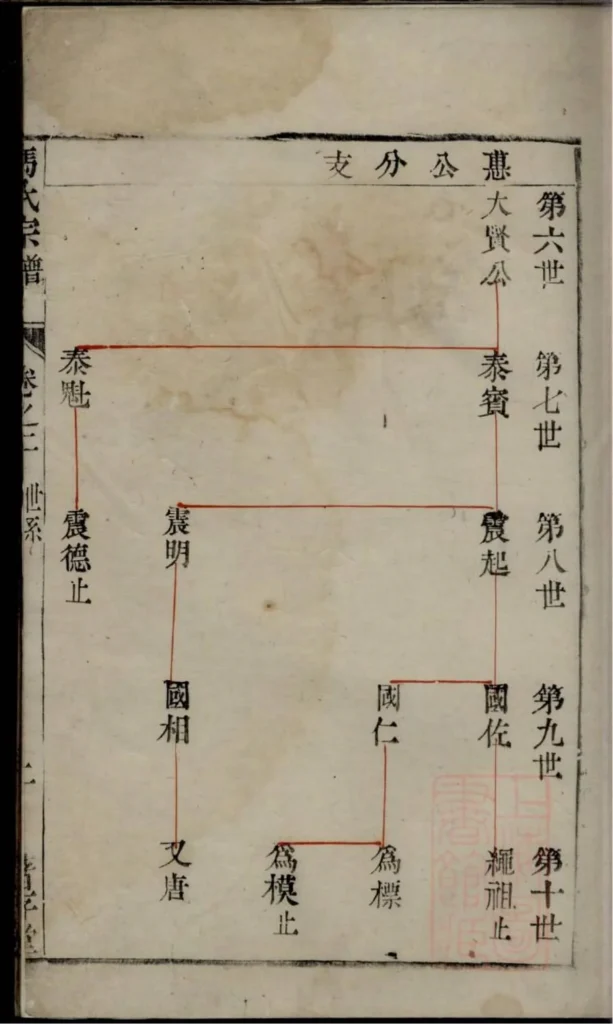 惠公分支
第六世
大賢公
第七世
泰賓
泰魁
第八世
震起
震明
震德止
第九世
國佐
國仁
國相
第十世
繩祖止
為標
為模止
又唐
馮氏宗譜
卷之二
世系